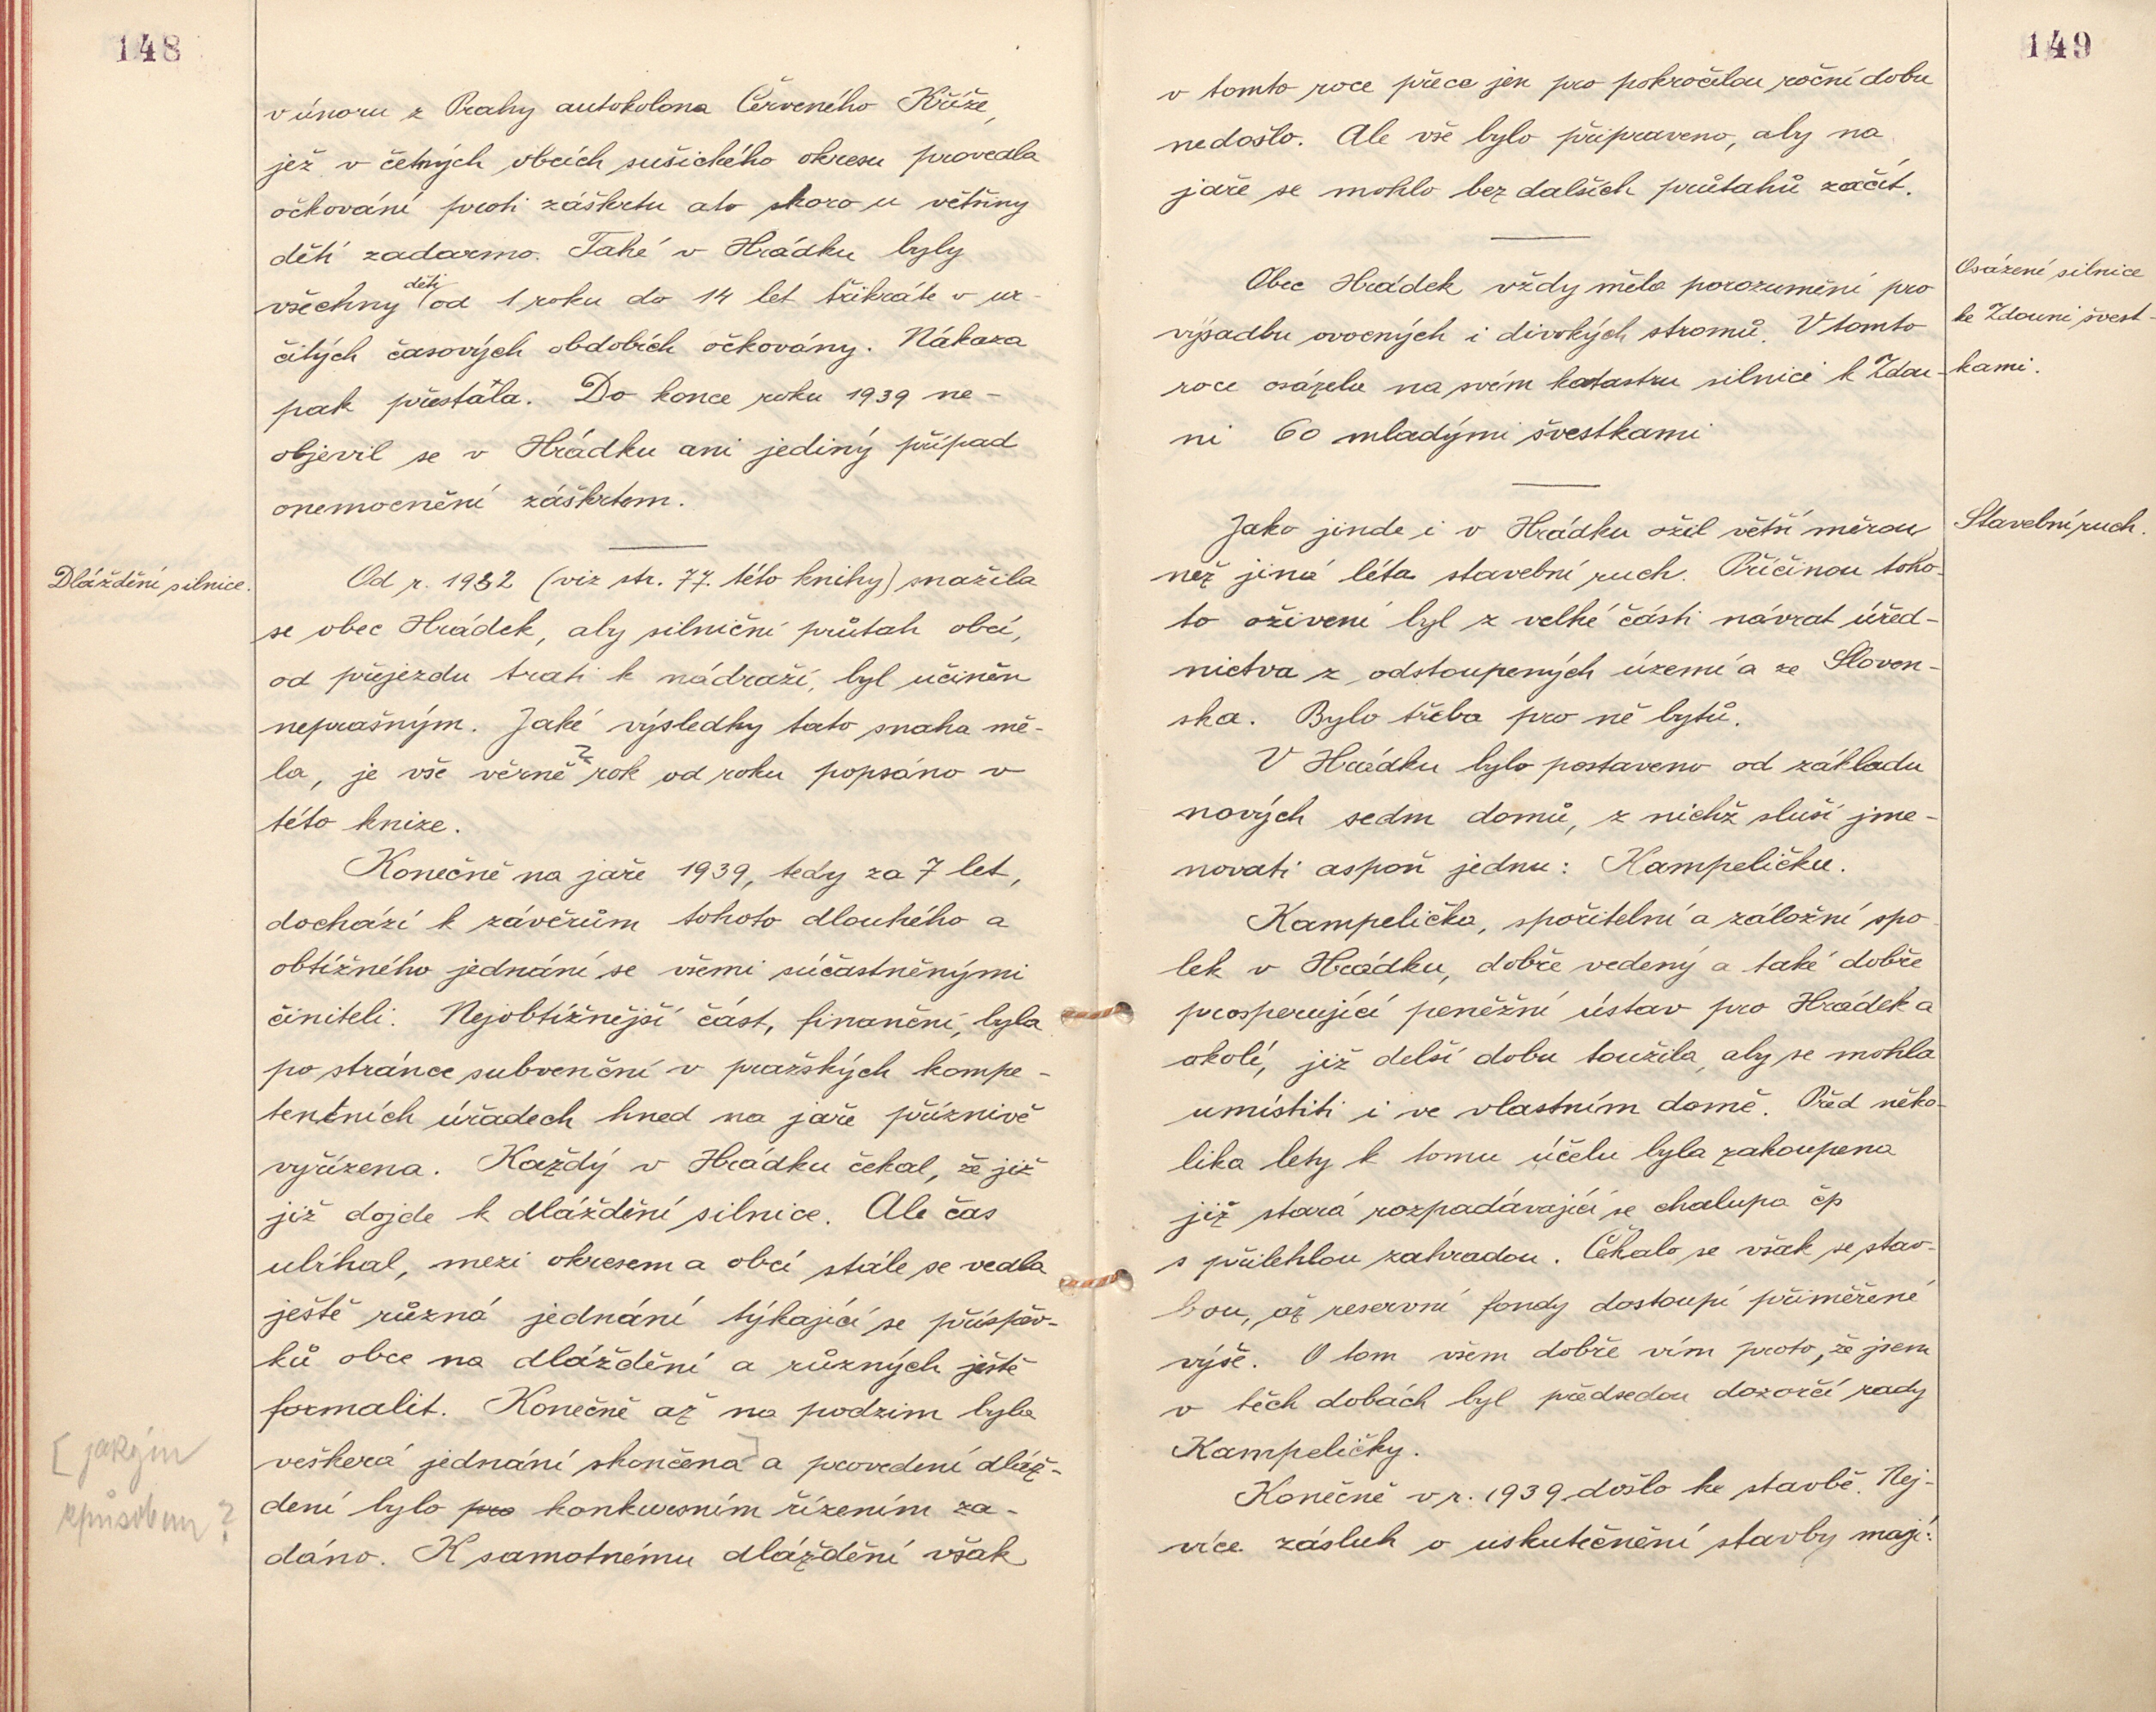 148
v únoru z Prahy autokolona Červeného Kříže,
jež v četných obcích sušického okresu provedla
očkování proti záškrtu a to skoro u většiny
dětí zadarmo. Také v Hrádku byly
děti
všechny od 1 roku do 14 let třikráte v ur-
čitých časových obdobích očkovány. Nákaza
pak přestála. Do konce roku 1939 ne-
objevil se v Hrádku ani jediný případ
onemocnění záškrtem.
Dláždění silnice.
Od r. 1932 (viz str. 77. této knihy) snažila
se obec Hrádek, aby silniční průtah obcí,
od přejezdu trati k nádraží, byl učiněn
neprašným. Jaké výsledky tato snaha mě-
la, je vše věrně rok od roku popsáno v
této knize.
Konečně na jaře 1939, tedy za 7 let,
dochází k závěrům tohoto dlouhého a
obtížného jednání se všemi súčastněnými
činiteli. Nejobtížnější část, finanční, byla
po stránce subvenční v pražských kompe-
tentních úřadech hned na jaře příznivě
vyřízena. Každý v Hrádku čekal, že již
již dojde k dláždění silnice. Ale čas
ubíhal, mezi okresem a obcí stále se vedla
ještě různá jednání týkající se příspěv-
ků obce na dláždění a různých ještě
formalit. Konečně až na podzim byla
veškerá jednání skončena] a provedení dláž-
[jakým
způsobem?
dení bylo pro konkursním řízením za-
dáno. K samotnému dláždění však
149
v tomto roce přece jen pro pokročilou roční dobu
nedošlo. Ale vše bylo připraveno, aby na
jaře se mohlo bez dalších průtahů začít.
Osázení silnice
ke Zdouni švest-
kami.
Obec Hrádek vždy měla porozumění pro
výsadbu ovocných i divokých stromů. V tomto
roce osázela na svém katastru silnici k Zdou-
ni 60 mladými švestkami
Stavební ruch.
Jako jinde i v Hrádku ožil větší měrou
než jiná léta stavební ruch. Příčinou toho-
to oživení byl z velké části návrat úřed-
nictva z odstoupených území a ze Sloven-
ska. Bylo třeba pro ně bytů.
V Hrádku bylo postaveno od základu
nových sedm domů, z nichž sluší jme-
novati aspoň jednu: Kampeličku.
Kampelička, spořitelní a záložní spo-
lek v Hrádku, dobře vedený a také dobře
prosperující peněžní ústav pro Hrádek a
okolí, již delší dobu toužila, aby se mohla
umístiti i ve vlastním domě. Před něko-
lika lety k tomu účelu byla zakoupena
již stará rozpadávající se chalupa čp
s přilehlou zahradou. Čekalo se však se stav-
bou, až reservní fondy dostoupí přiměřené
výše. O tom všem dobře vím proto, že jsem
v těch dobách byl předsedou dozorčí rady
Kampeličky.
Konečně v r. 1939 došlo ke stavbě. Nej-
více zásluh o uskutečnění stavby mají: